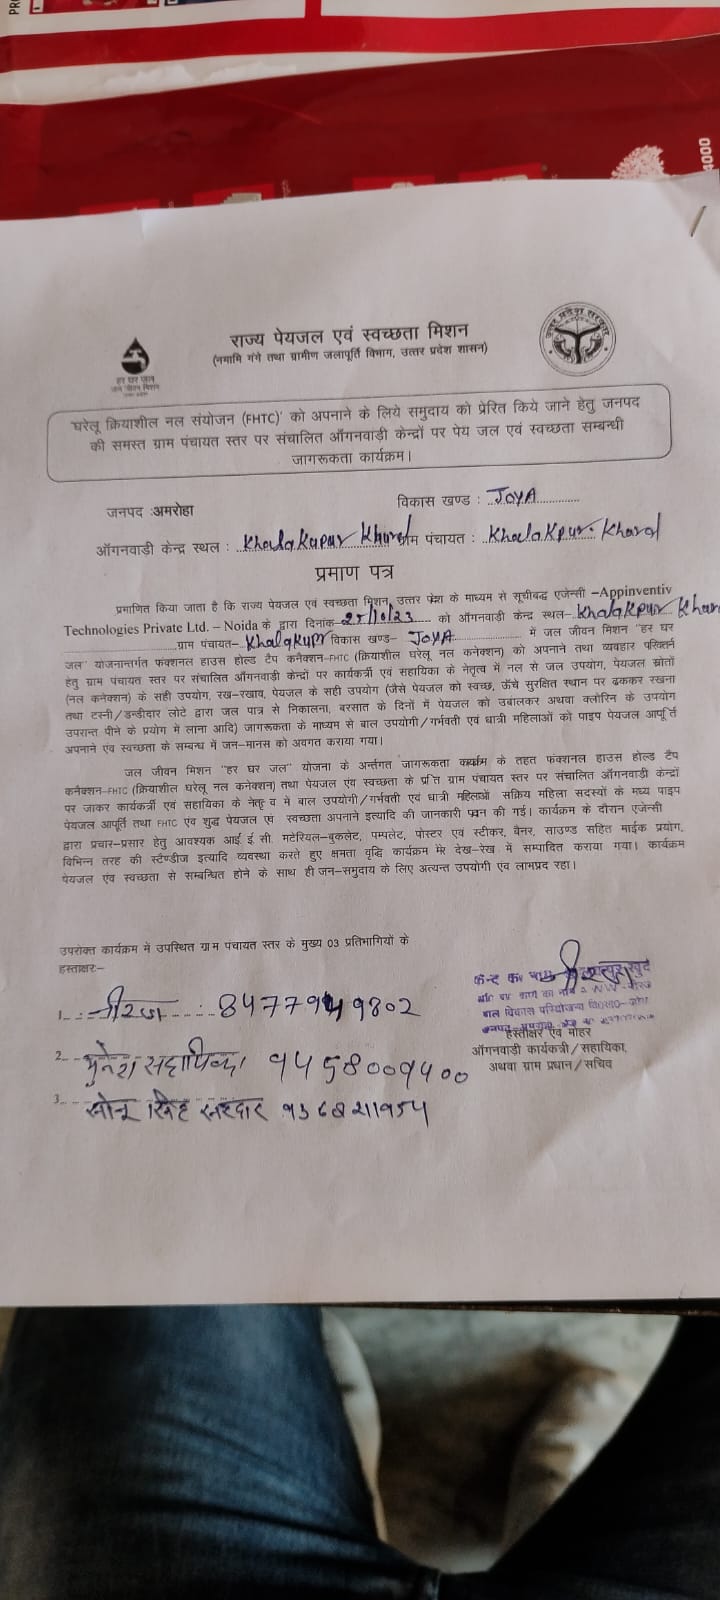 4000
हर घर जल
जल जीवन मिशन
उत्तर प्रदेश सरकार
राज्य पेयजल एवं स्वच्छता मिशन
(नमामि गंगे तथा ग्रामीण जलापूर्ति विभाग, उत्तर प्रदेश शासन)
'घरेलू क्रियाशील नल संयोजन (FHTC)' को अपनाने के लिये समुदाय को प्रेरित किये जाने हेतु जनपद
की समस्त ग्राम पंचायत स्तर पर संचालित आँगनवाड़ी केन्द्रों पर पेय जल एवं स्वच्छता सम्बन्धी
जागरूकता कार्यक्रम।
जनपद :अमरोहा विकास खण्ड : JOYA
ऑगनवाडी केन्द्र स्थल : Khalakapur Khurd ग्राम पंचायत : Khalakpur. Khurd
प्रमाण पत्र
प्रमाणित किया जाता है कि राज्य पेयजल एवं स्वच्छता मिशन, उत्तर प्रदेश के माध्यम से सूचीबद्ध एजेन्सी –Appinventiv
Technologies Private Ltd. – Noida के द्वारा दिनांक- 25/10/23 को ऑगनवाडी केन्द्र स्थल- Khalakpur Khur
ग्राम पंचायत- Khalakpur विकास खण्ड- JOYA में जल जीवन मिशन "हर घर
जल" योजनान्तर्गत फंक्शनल हाउस होल्ड टैप कनैक्शन-FHTC (क्रियाशील घरेलू नल कनेक्शन) को अपनाने तथा व्यवहार परिवर्तन
हेतु ग्राम पंचायत स्तर पर संचालित ऑगनवाडी केन्द्रों पर कार्यकर्त्री एवं सहायिका के नेतृत्व में नल से जल उपयोग, पेयजल स्रोतों
(नल कनेक्शन) के सही उपयोग, रख-रखाव, पेयजल के सही उपयोग (जैसे पेयजल को स्वच्छ, ऊँचे सुरक्षित स्थान पर ढककर रखना
तथा टस्नी/डन्डीदार लोटे द्वारा जल पात्र से निकालना, बरसात के दिनों में पेयजल को उबालकर अथवा क्लोरिन के उपयोग
उपरान्त पीने के प्रयोग में लाना आदि) जागरूकता के माध्यम से बाल उपयोगी/गर्भवती एवं धात्री महिलाओं को पाइप पेयजल आपूर्ति
अपनाने एंव स्वच्छता के सम्बन्ध में जन-मानस को अवगत कराया गया।
जल जीवन मिशन "हर घर जल" योजना के अर्न्तगत जागरूकता कार्यक्रम के तहत फंक्शनल हाउस होल्ड टैप
कनैक्शन-FHTC (क्रियाशील घरेलू नल कनेक्शन) तथा पेयजल एंव स्वच्छता के प्रति ग्राम पंचायत स्तर पर संचालित ऑगनवाडी केन्द्रों
पर जाकर कार्यकर्त्री एवं सहायिका के नेतृत्व में बाल उपयोगी/गर्भवती एवं धात्री महिलाओ सक्रिय महिला सदस्यों के मध्य पाइप
पेयजल आपूर्ति तथा FHTC एंव शुद्ध पेयजल एंव स्वच्छता अपनाने इत्यादि की जानकारी प्रदान की गई। कार्यक्रम के दौरान एजेन्सी
द्वारा प्रचार-प्रसार हेतु आवश्यक आई.ई.सी. मटेरियल-बुकलेट, पम्पलेट, पोस्टर एंव स्टीकर, बैनर, साउण्ड सहित माईक प्रयोग,
विभिन्न तरह की स्टैण्डीज इत्यादि व्यवस्था करते हुए क्षमता वृद्धि कार्यक्रम मेरे देख-रेख में सम्पादित कराया गया। कार्यक्रम
पेयजल एंव स्वच्छता से सम्बन्धित होने के साथ ही जन-समुदाय के लिए अत्यन्त उपयोगी एंव लाभप्रद रहा।
उपरोक्त कार्यक्रम में उपस्थित ग्राम पंचायत स्तर के मुख्य 03 प्रतिभागियों के
हस्ताक्षरः–
1. नीरज
2. मुनेश सहायिका ९४५8००९४००
3. सिंह
बाल विकास परियोजना
हस्ताक्षर एवं मोहर
ऑगनवाडी कार्यकत्री/सहायिका,
अथवा ग्राम प्रधान/सचिव